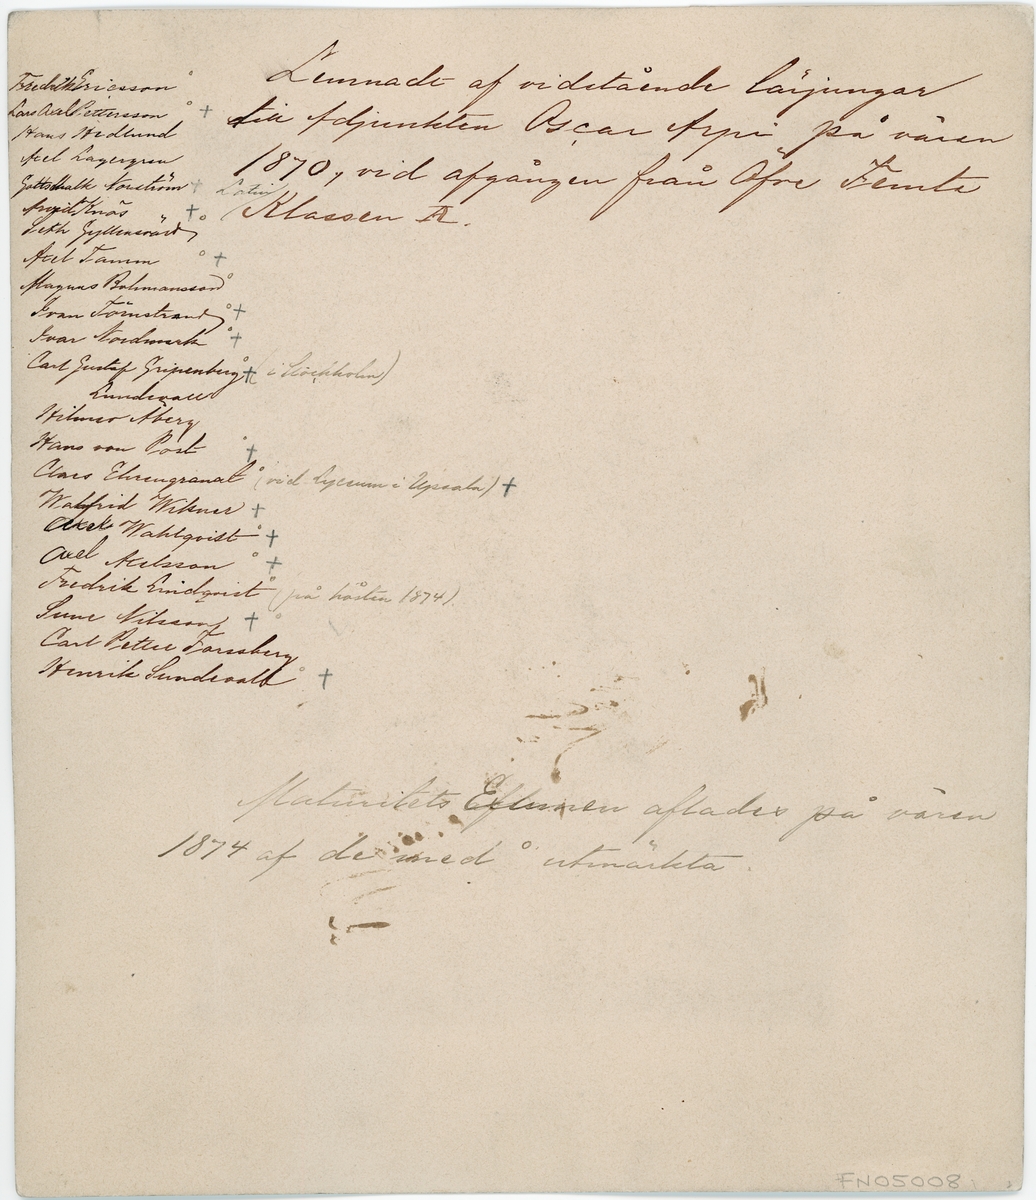 Lemnadt af vidstående lärjungar
till Adjunkten Oscar Arpi på våren
1870, vid afgången från Öfre Femte
Latin
Klassen A.
Fredrik Ericsson °
Lars Axel Pettersson ° +
Hans Hedlund
Axel Lagergren
Gottschalk Norström +
August Knös +
Seth Gyllensvärd °
Axel Tamm ° +
Magnus Bohmansson °
Ivan Törnstrand ° +
Ivar Nordmark ° +
Carl Gustaf Gripenberg ° + (i Stockholm)
Lundevall
Hilmer Åberg
Hans von Post ° +
Claes Ehrengranat ° (vid Lyceum i Upsala) +
Walfrid Wikner +
Axel Wahlqvist ° +
Axel Axelsson ° +
Fredrik Lindqvist ° (på hösten 1874).
Sune Nilsson + °
Carl Petter Forssberg
Henrik Sundevall ° +
Maturitets Examen aflades på våren
1874 af de med ° utmärkta.
FN05008